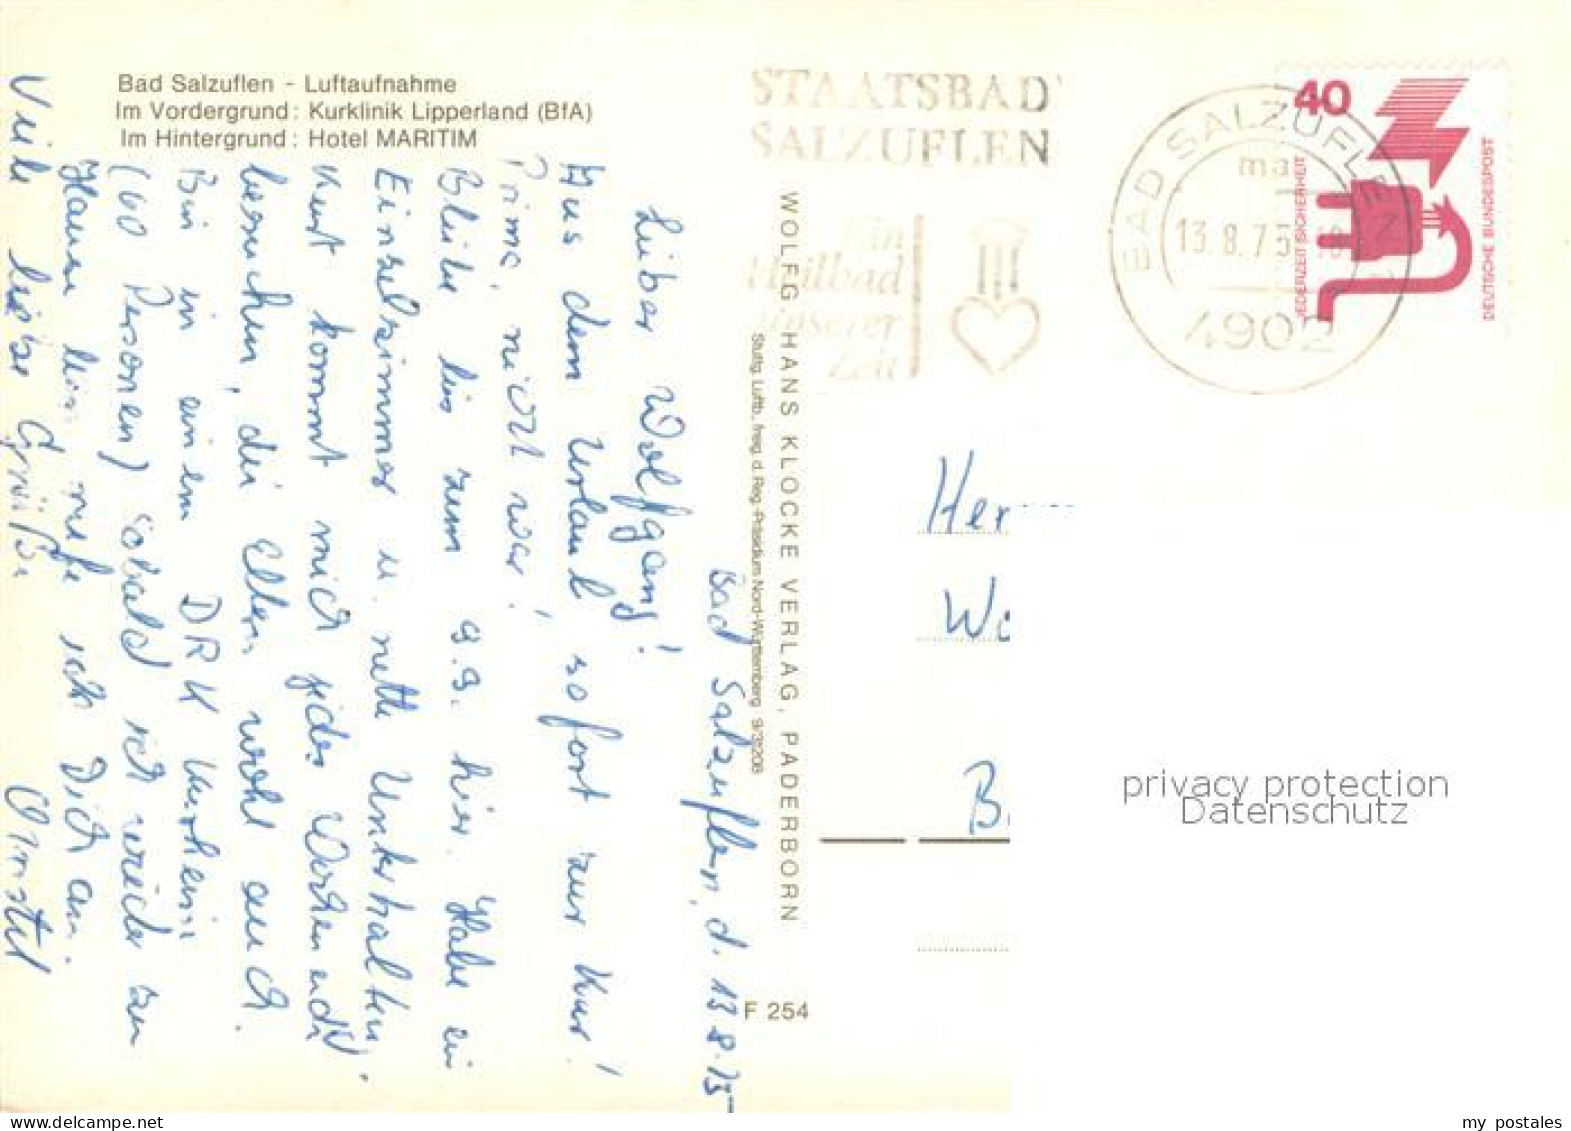 Bad Salzuflen - Luftaufnahme
Im Vordergrund: Kurklinik Lipperland (BfA)
Im Hintergrund: Hotel MARITIM
Bad Salzuflen, d. 13.8.75
Lieber Wolfgang!
Aus dem Urlaub sofort zur Kur!
Prima, nicht war!
Bleibe bis zum 9.9. hier. Habe ein
Einzelzimmer u. nette Unterhaltung.
Kurt kommt mich jedes Wochenende
besuchen, die Eltern wohl auch.
Bin in einem DRK Kurheim
(60 Personen) sobald ich wieder zu
Hause bin rufe ich Dich an.
Viele liebe Grüße
Christel
WOLFG HANS KLOCKE VERLAG, PADERBORN
Stuttg. Luftb., freig. d. Reg.-Präsidium Nord-Württemberg 9/3/208
F 254
STAATSBAD
SALZUFLEN
Ein
Heilbad
unserer
Zeit
BAD SALZUFLEN
ma
13.8.75
4902
40
JEDERZEIT SICHERHEIT
DEUTSCHE BUNDESPOST
Her
Wo
B
privacy protection
Datenschutz
www.delcampe.net
my_postales